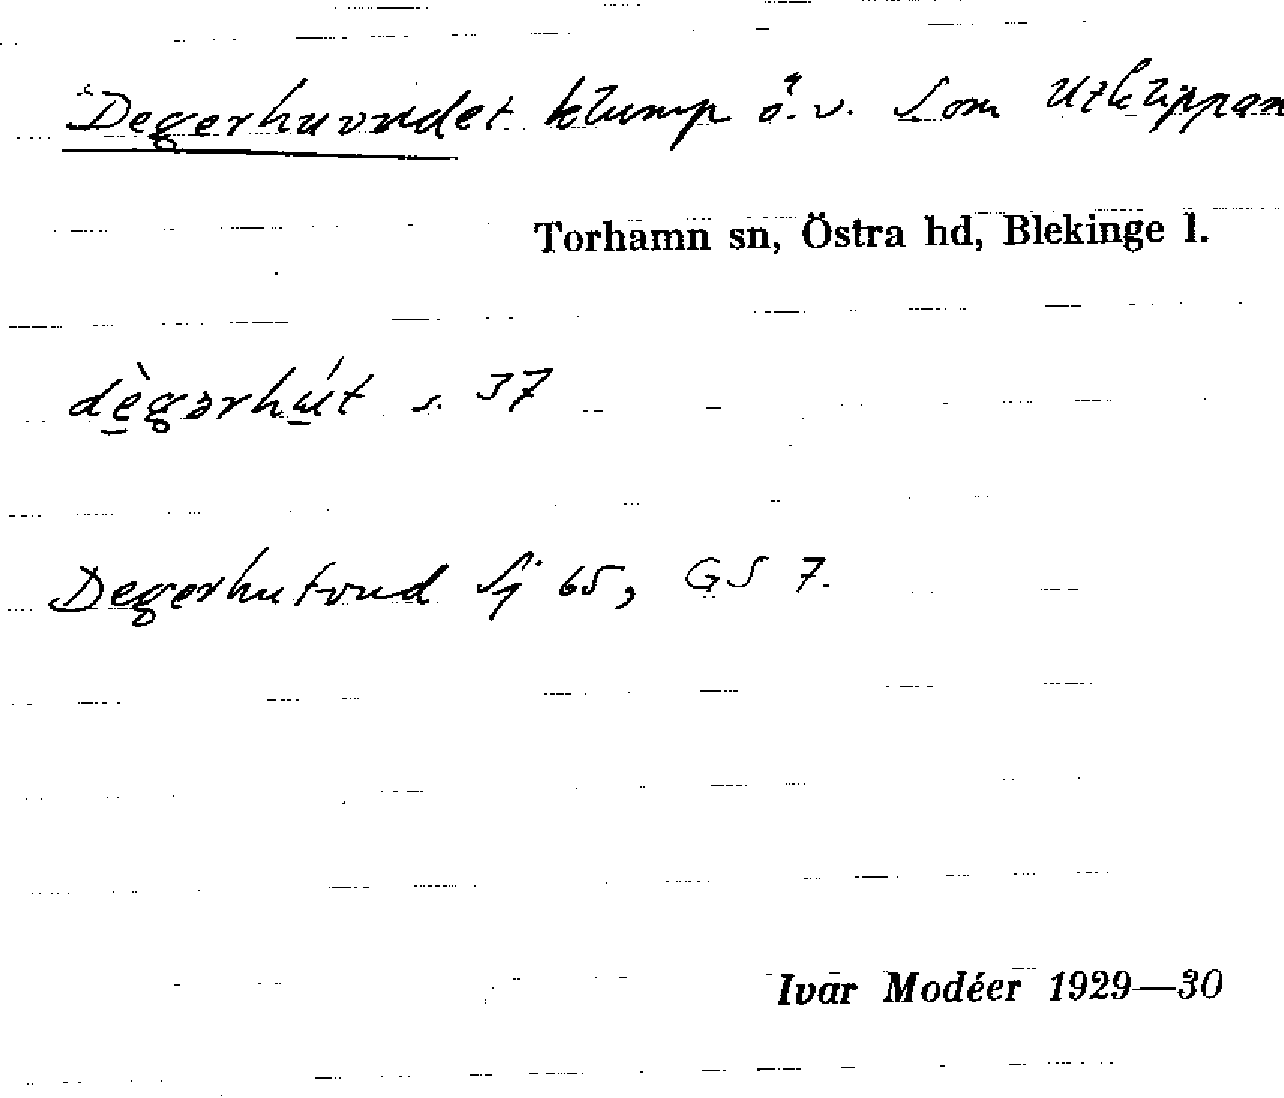 Degerhuvudet klump ö. v. som Utklippan
Torhamn sn, Östra hd, Blekinge l.
dègərhút s. 37
Degerhutvud Sj 65, GS 7.
Ivar Modéer 1929—30